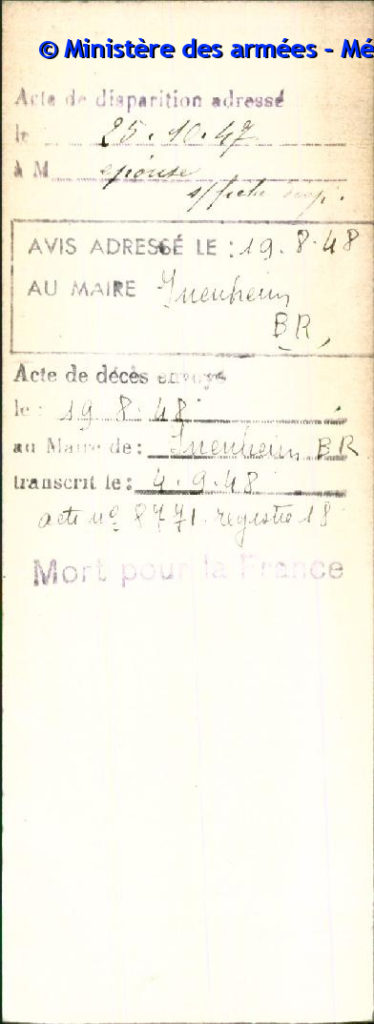 © Ministère des armées - Mé
Acte de disparition adressé
le 25.10.47
à M épouse
s/fiche
AVIS ADRESSÉ LE : 19.8.48
AU MAIRE
BR,
Acte de décès envoyé
le : 19 8.48
au Maire de : BR
transcrit le : 4.9.48
acte nº 8771. registre 18
Mort pour la France